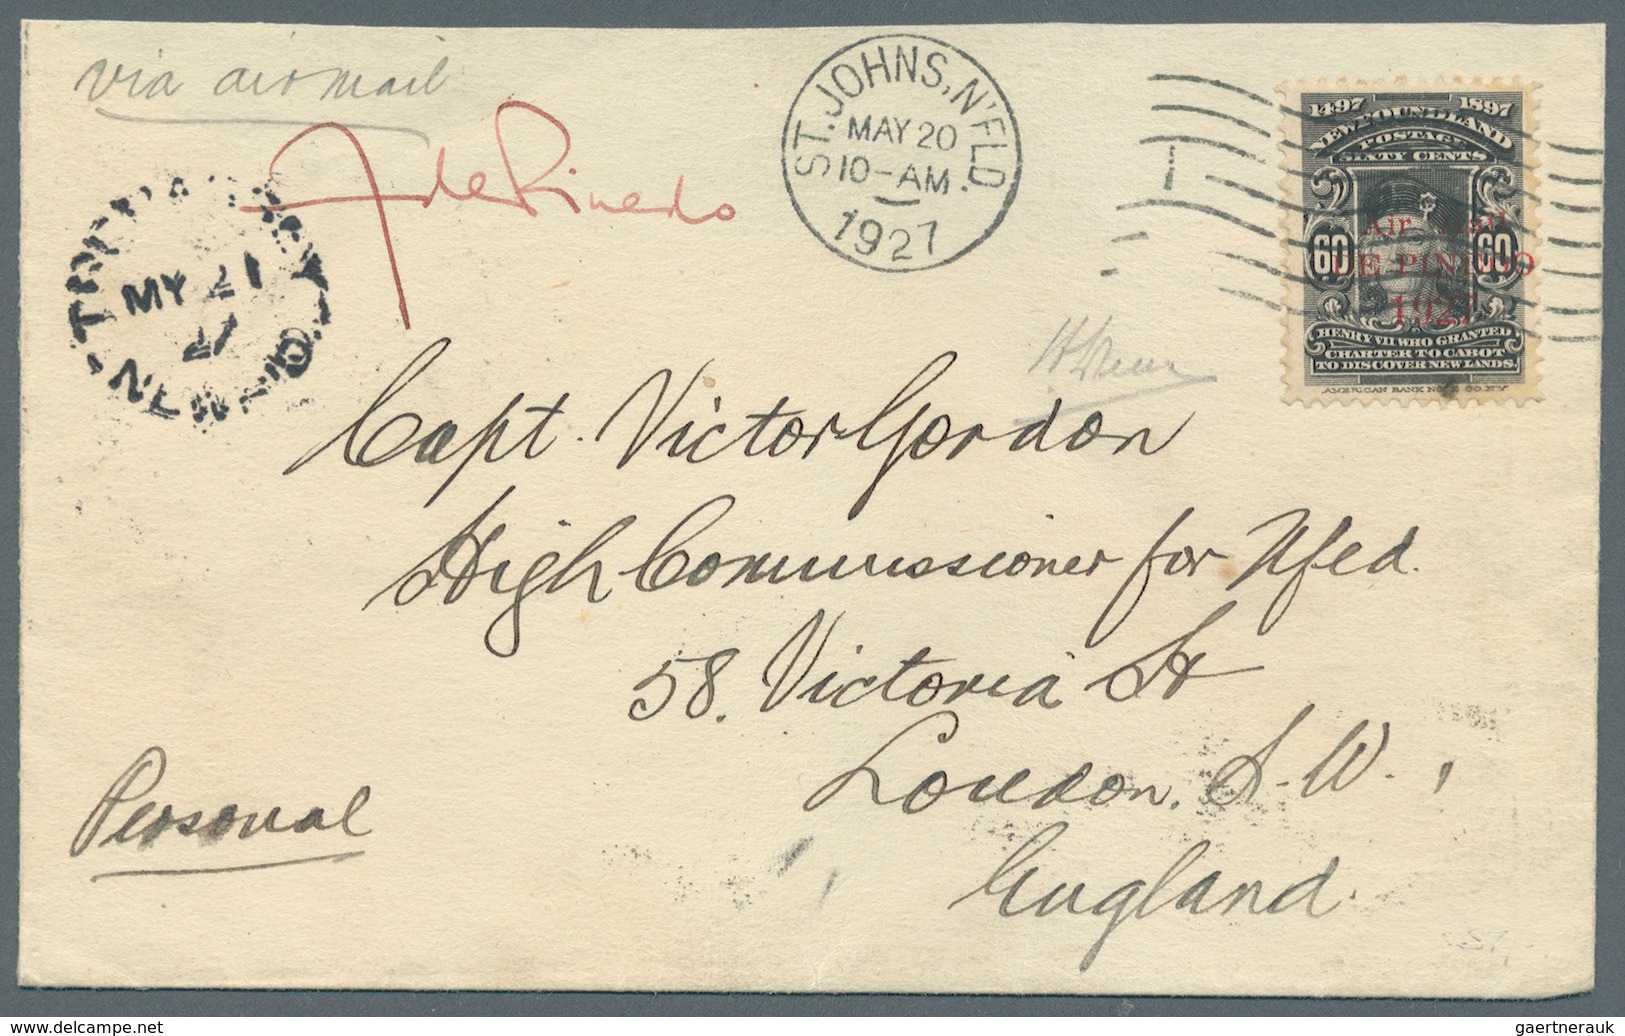 via air mail
F de Pinedo
ST. JOHNS, N'FLD.
MAY 20
10-AM
1927
MY 21
27
NEWF'D
1497 1897
NEWFOUNDLAND
POSTAGE
SIXTY CENTS
Air Mail
60 60
DE PINEDO
1927
HENRY VII WHO GRANTED
CHARTER TO CABOT
TO DISCOVER NEW LANDS.
AMERICAN BANK NOTE CO. N.Y.
Capt. Victor Gordon
High Commissioner for Nfld.
58. Victoria St
London. S. W. 1
England.
Personal
gaertnerauk